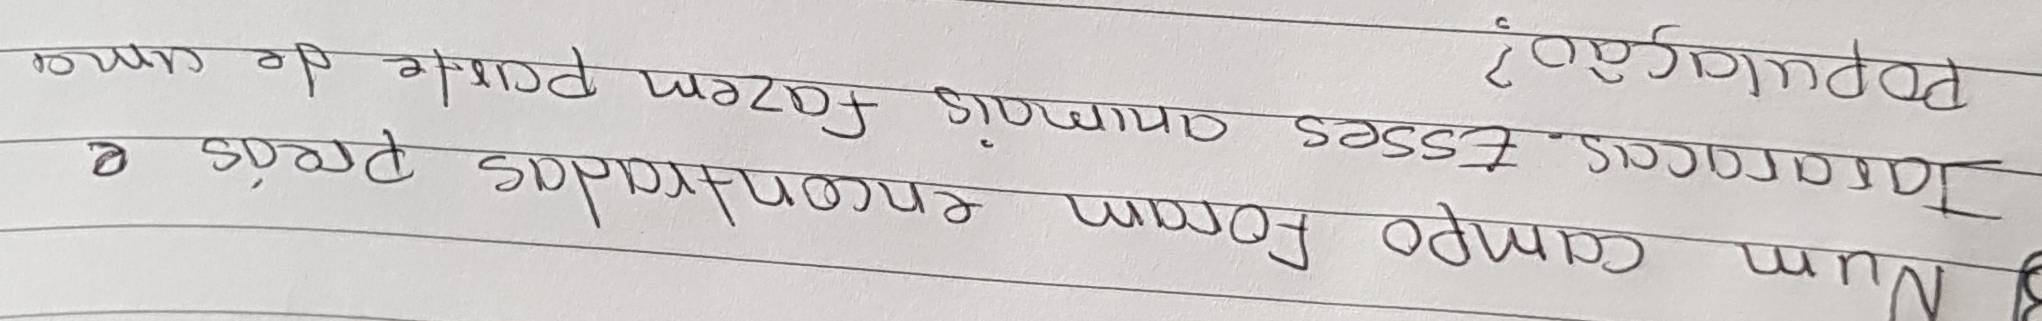 3) Num campo foram encontradas preás e
Jararacas. Esses animais fazem parte de uma
população?